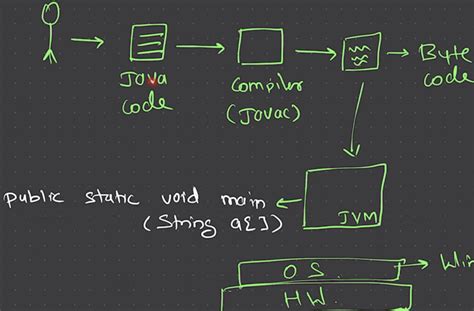 Java
code
Compiler
(Javac)
Byte
code
public static void main
(String a[])
JVM
OS.
HW.